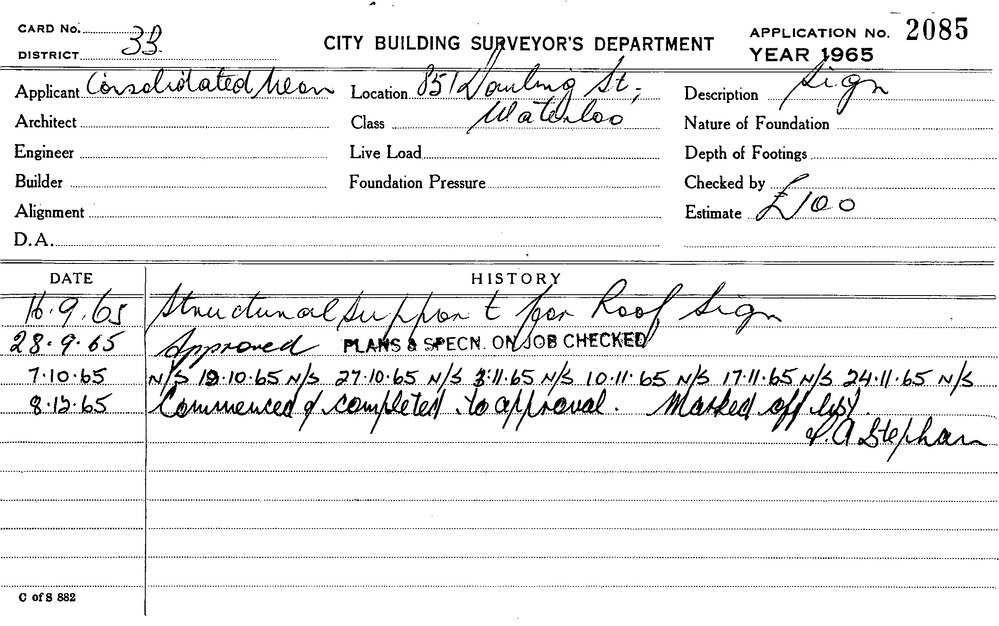 CARD No.
DISTRICT 33.
CITY BUILDING SURVEYOR'S DEPARTMENT
APPLICATION No. 2085
YEAR 1965
Applicant Consolidated Neon
Location 851 Dowling St;
Description Sign
Architect
Class Waterloo
Nature of Foundation
Engineer
Live Load
Depth of Footings
Builder
Foundation Pressure
Checked by
Alignment
Estimate £100
D.A.
DATE HISTORY
16.9.65 Structural support for Roof Sign
28.9.65 Approved PLANS & SPECN. ON JOB CHECKED
7.10.65 N/S 19.10.65 N/S 27.10.65 N/S 3.11.65 N/S 10.11.65 N/S 17.11.65 N/S 24.11.65 N/S
8.12.65 Commenced & completed to approval. Marked off list.
P.A Stephan
C of S 882